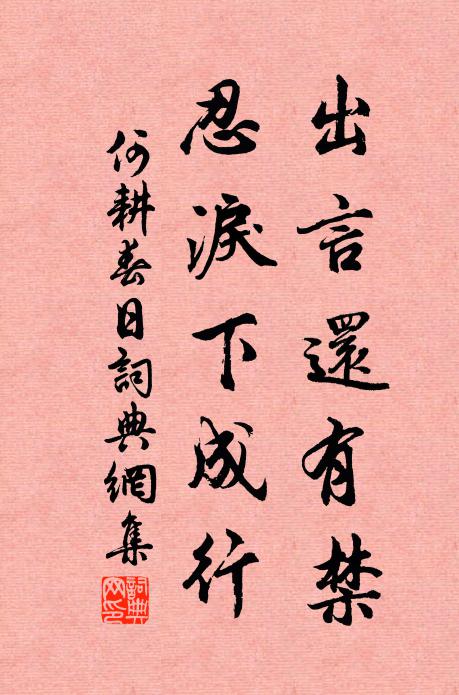 出言還有禁
忍淚下成行
何耕春日詞典網集
詞典網印